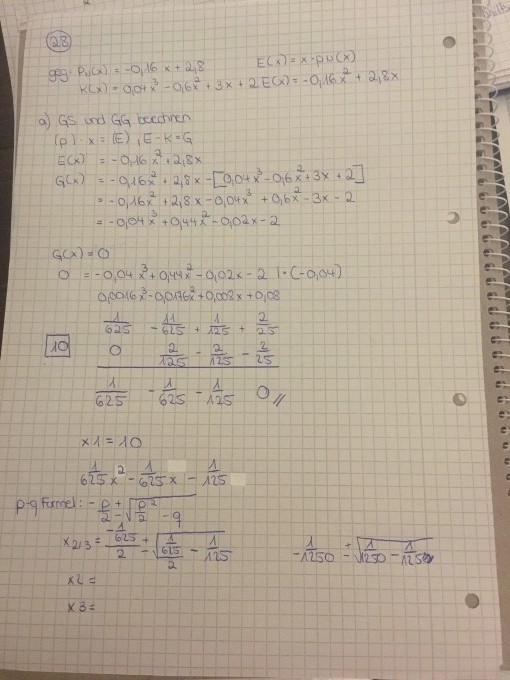 28
geg: pN(x) = -0,16x + 2,8 E(x) = x·pN(x)
K(x) = 0,04x³ - 0,6x² + 3x + 2 E(x) = -0,16x² + 2,8x
a) GS und GG berechnen
(p) · x = (E) , E - K = G
E(x) = -0,16x² + 2,8x
G(x) = -0,16x² + 2,8x - [0,04x³ - 0,6x² + 3x + 2]
= -0,16x² + 2,8x - 0,04x³ + 0,6x² - 3x - 2
= -0,04x³ + 0,44x² - 0,02x - 2
G(x) = 0
0 = -0,04x³ + 0,44x² - 0,02x - 2 | · (-0,04)
0,0016x³ - 0,0176x² + 0,008x + 0,08
1/625 - 11/625 + 1/125 + 2/25
10 0 2/125 - 2/125 - 2/25
1/625 - 1/625 - 1/125 0 //
x1 = 10
1/625 x² - 1/625 x - 1/125
p-q Formel: -p/2 ± √(p²/2 - q)
x2/3 = (-1/625)/2 ± √((1/625)/2 - 1/125) -1/1250 ± √(1/1250 - 1/1250)
x2 =
x3 =